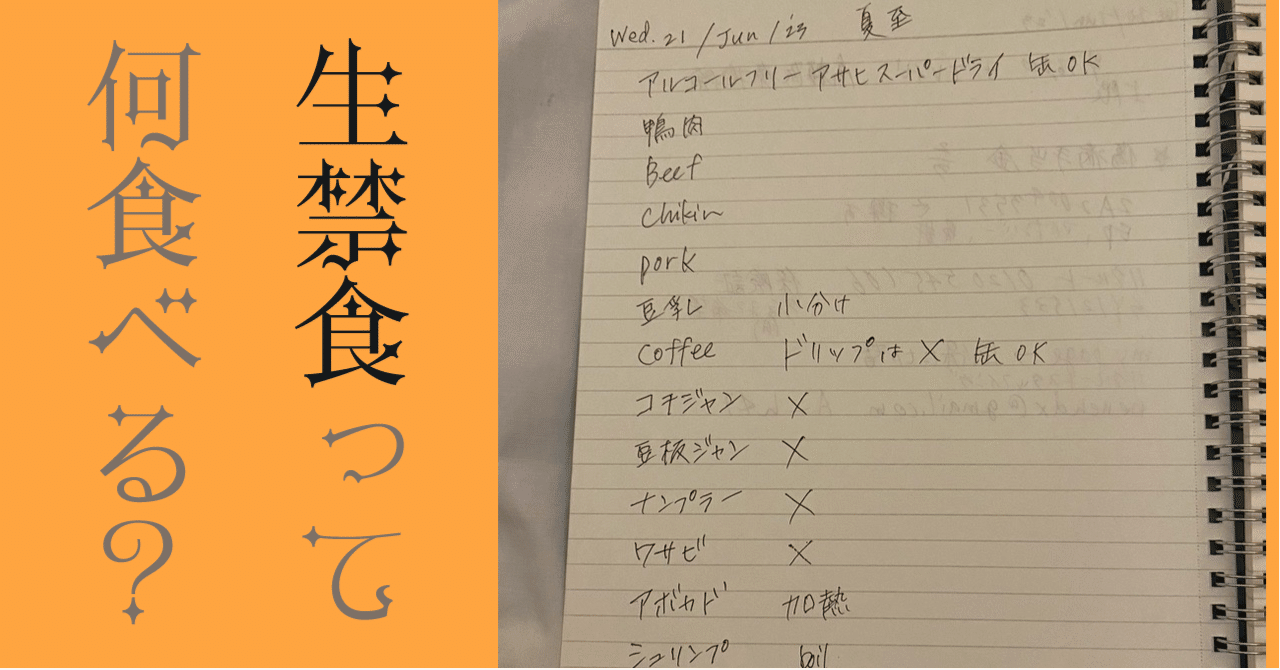 生禁食って
何食べる?
Wed. 21 / Jun / '23 夏至
アルコールフリー アサヒスーパードライ 缶 OK
鴨肉
Beef
chikin
pork
豆乳 小分け
coffee ドリップは × 缶 OK
コチジャン ×
豆板ジャン ×
ナンプラー ×
ワサビ ×
アボカド 加熱
シュリンプ boil